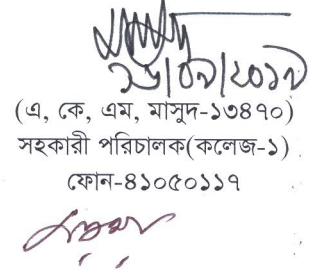 (এ, কে, এম, মাসুদ-১৩৪৭০)
সহকারী পরিচালক(কলেজ-১)
ফোন-৪১০৫০১১৭